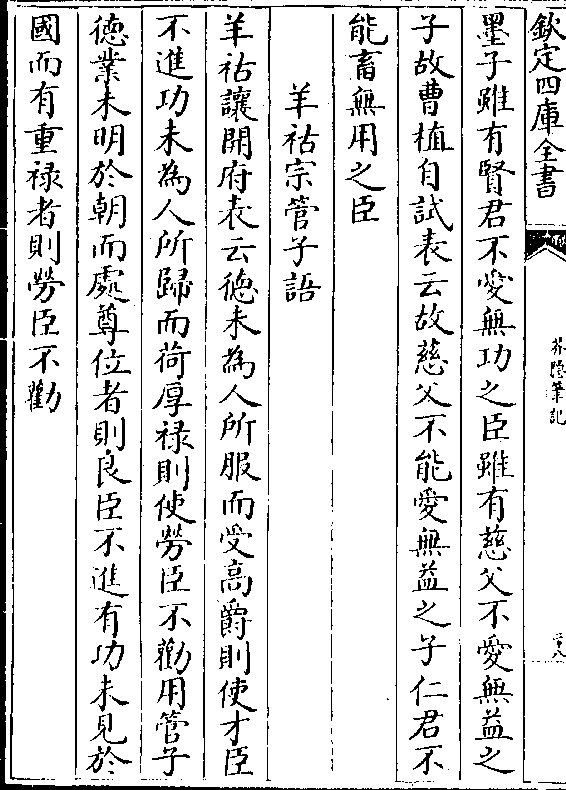 欽定四庫全書
芥隱筆記
墨子雖有賢君不愛無功之臣雖有慈父不愛無益之
子故曹植自試表云故慈父不能愛無益之子仁君不
能畜無用之臣
羊祜宗管子語
羊祜讓開府表云德未為人所服而受高爵則使才臣
不進功未為人所歸而荷厚祿則使勞臣不勸用管子
德業未明於朝而處尊位者則良臣不進有功未見於
國而有重祿者則勞臣不勸